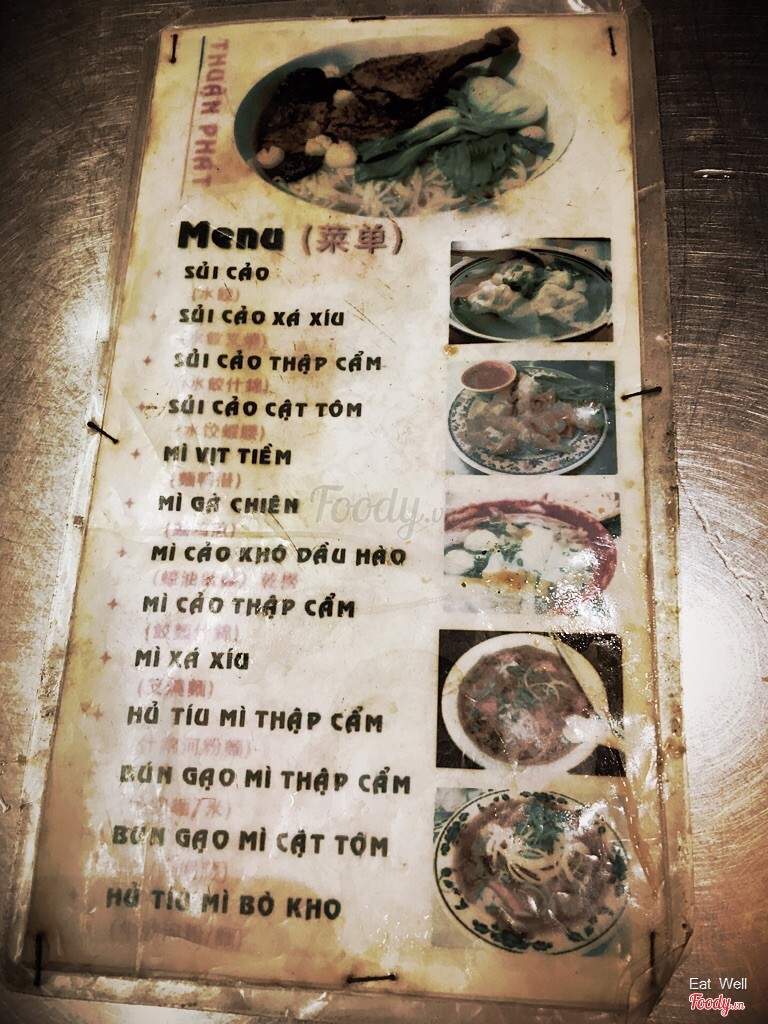 THUẬN PHÁT
Menu (菜单)
SỦI CẢO
(水餃)
SỦI CẢO XÁ XÍU
SỦI CẢO THẬP CẨM
(水餃什錦)
SỦI CẢO CẬT TÔM
MÌ VỊT TIỀM
MÌ GÀ CHIÊN
MÌ CẢO KHÔ DẦU HÀO
MÌ CẢO THẬP CẨM
(餃麵什錦)
MÌ XÁ XÍU
HỦ TÍU MÌ THẬP CẨM
BÚN GẠO MÌ THẬP CẨM
BÚN GẠO MÌ CẬT TÔM
HỦ TÍU MÌ BÒ KHO
Foody.vn
Eat Well
Foody.vn